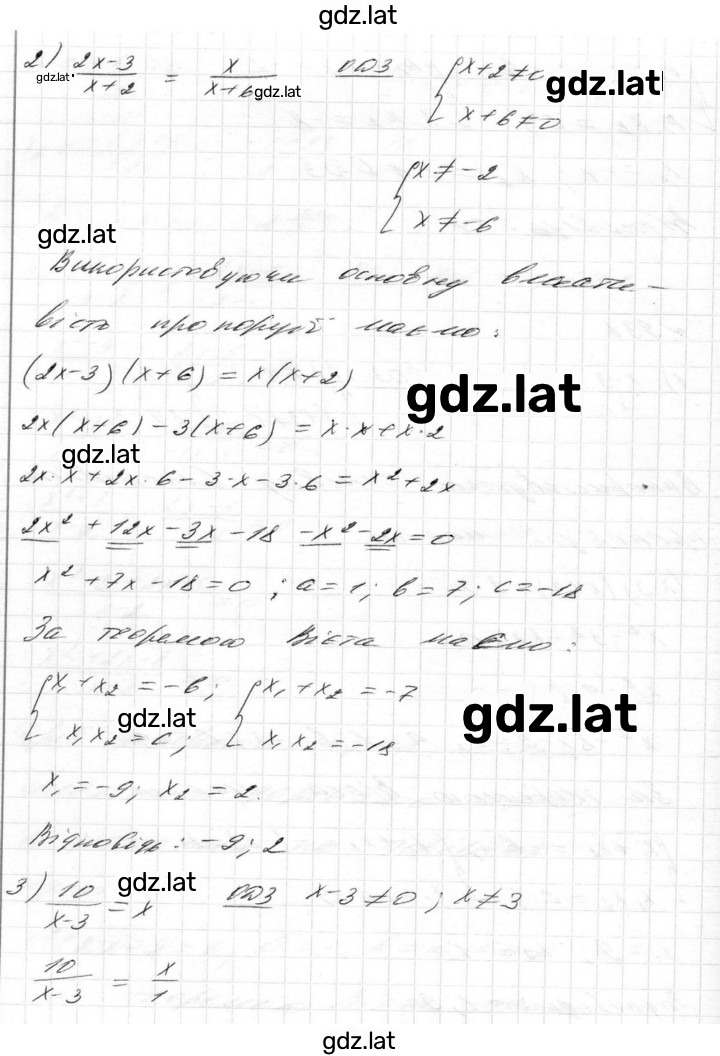 gdz.lat
2) (2x-3)/(x+2) = x/(x+6) ОДЗ { x+2≠0
gdz.lat gdz.lat gdz.lat
x+6≠0
{ x≠-2
x≠-6
gdz.lat
Використовуючи основну власти-
вість пропорції маємо:
(2x-3)(x+6) = x(x+2)
gdz.lat
2x(x+6) - 3(x+6) = x·x+x·2
gdz.lat
2x·x+2x·6-3·x-3·6 = x²+2x
2x²+12x-3x-18-x²-2x=0
x²+7x-18=0; a=1; b=7; c=-18
За теоремою Вієта маємо:
{ x₁+x₂=-b; { x₁+x₂=-7
gdz.lat gdz.lat
x₁x₂=c; x₁x₂=-18
x₁=-9; x₂=2.
Відповідь: -9; 2
gdz.lat
3) 10/(x-3) = x ОДЗ x-3≠0; x≠3
10/(x-3) = x/1
gdz.lat